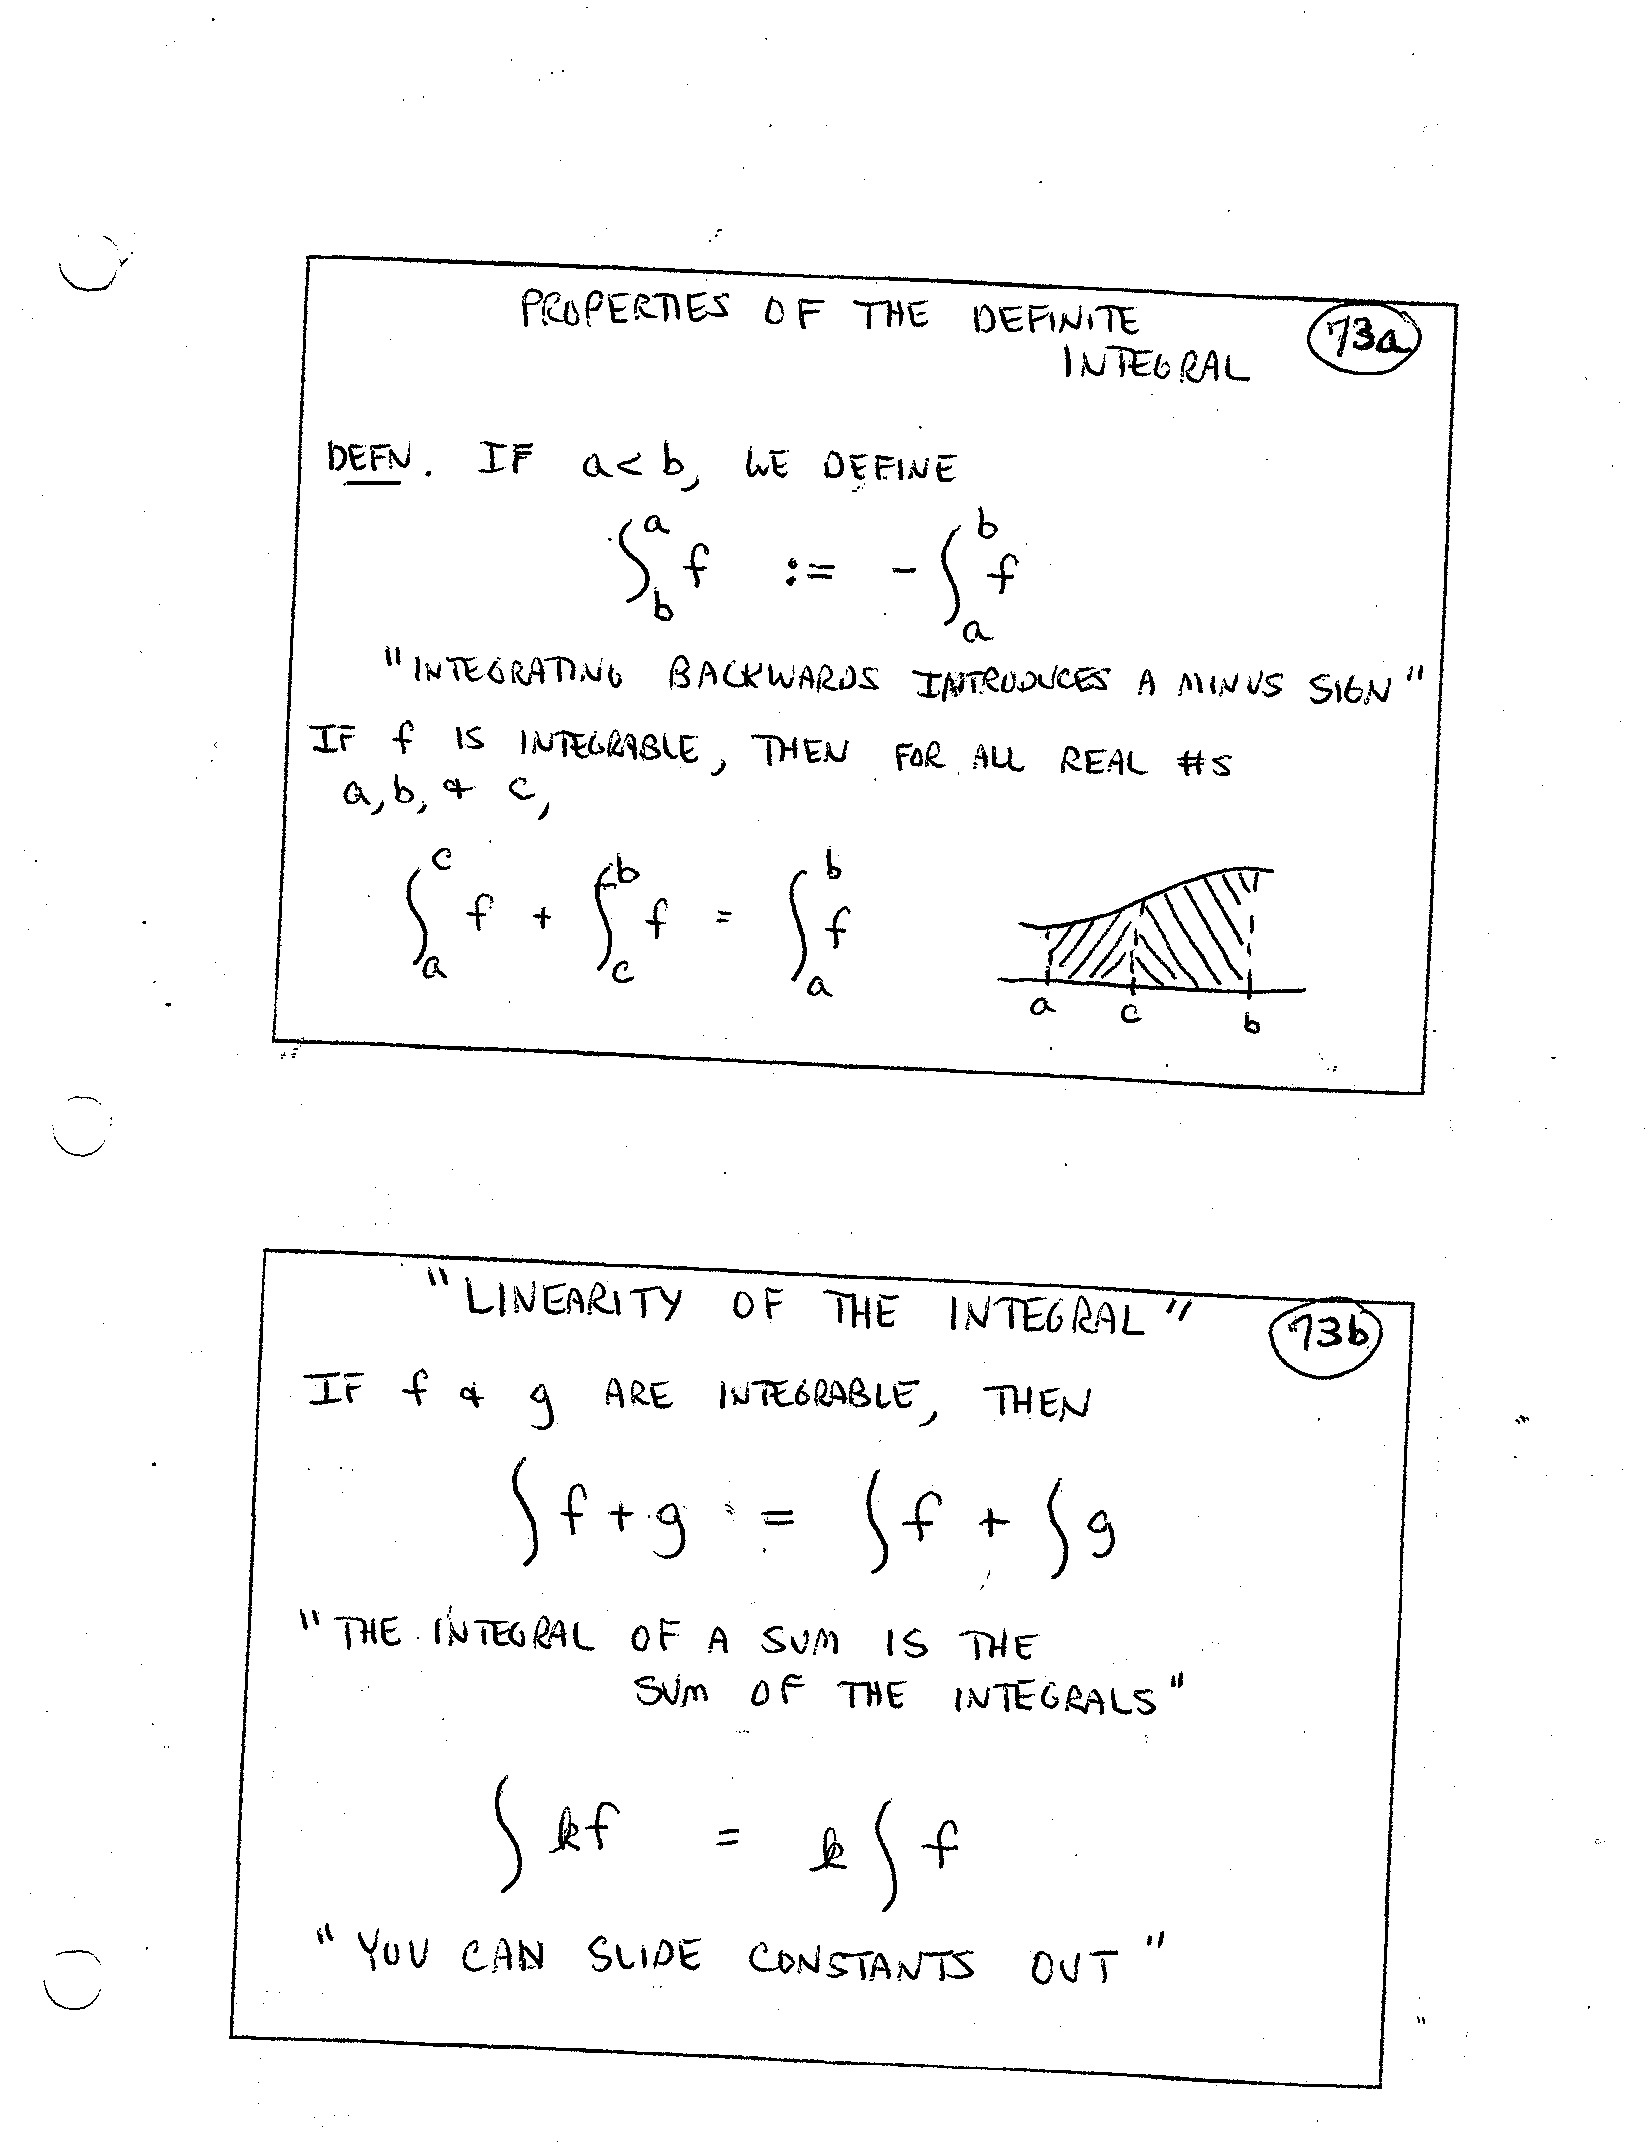 PROPERTIES OF THE DEFINITE
INTEGRAL
73a
DEFN. IF a < b, WE DEFINE
∫_b^a f := - ∫_a^b f
"INTEGRATING BACKWARDS INTRODUCES A MINUS SIGN"
IF f IS INTEGRABLE, THEN FOR ALL REAL #S
a, b, & c,
∫_a^c f + ∫_c^b f = ∫_a^b f
a c b
"LINEARITY OF THE INTEGRAL"
73b
IF f & g ARE INTEGRABLE, THEN
∫ f + g = ∫ f + ∫ g
"THE INTEGRAL OF A SUM IS THE
SUM OF THE INTEGRALS"
∫ kf = k ∫ f
"YOU CAN SLIDE CONSTANTS OUT"